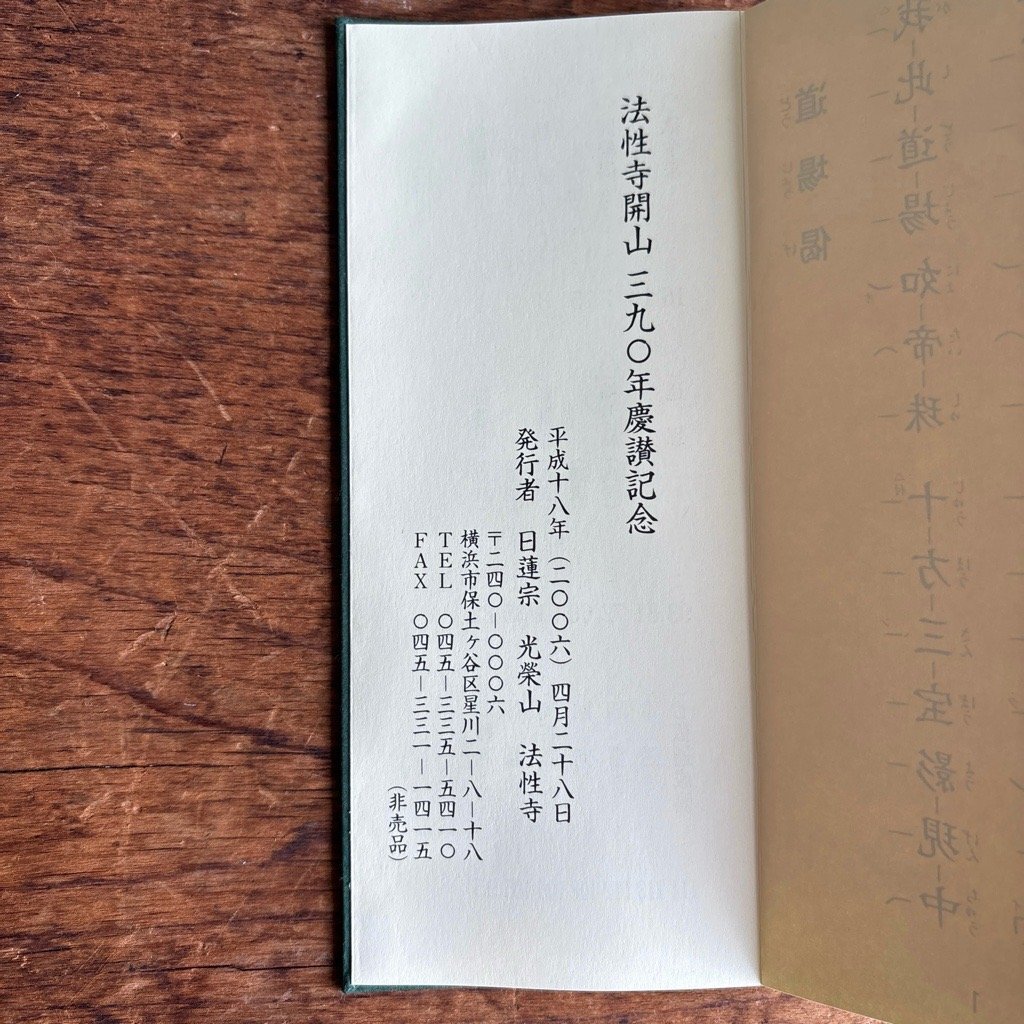 法性寺開山三九〇年慶讃記念
平成十八年（二〇〇六）四月二十八日
発行者　日蓮宗　光榮山　法性寺
〒二四〇－〇〇〇六
横浜市保土ヶ谷区星川二－八－十八
ＴＥＬ　〇四五－三三五－五四一〇
ＦＡＸ　〇四五－三三一－一四一五
（非売品）
道場偈
我此道場如帝珠　十方三宝影現中
1